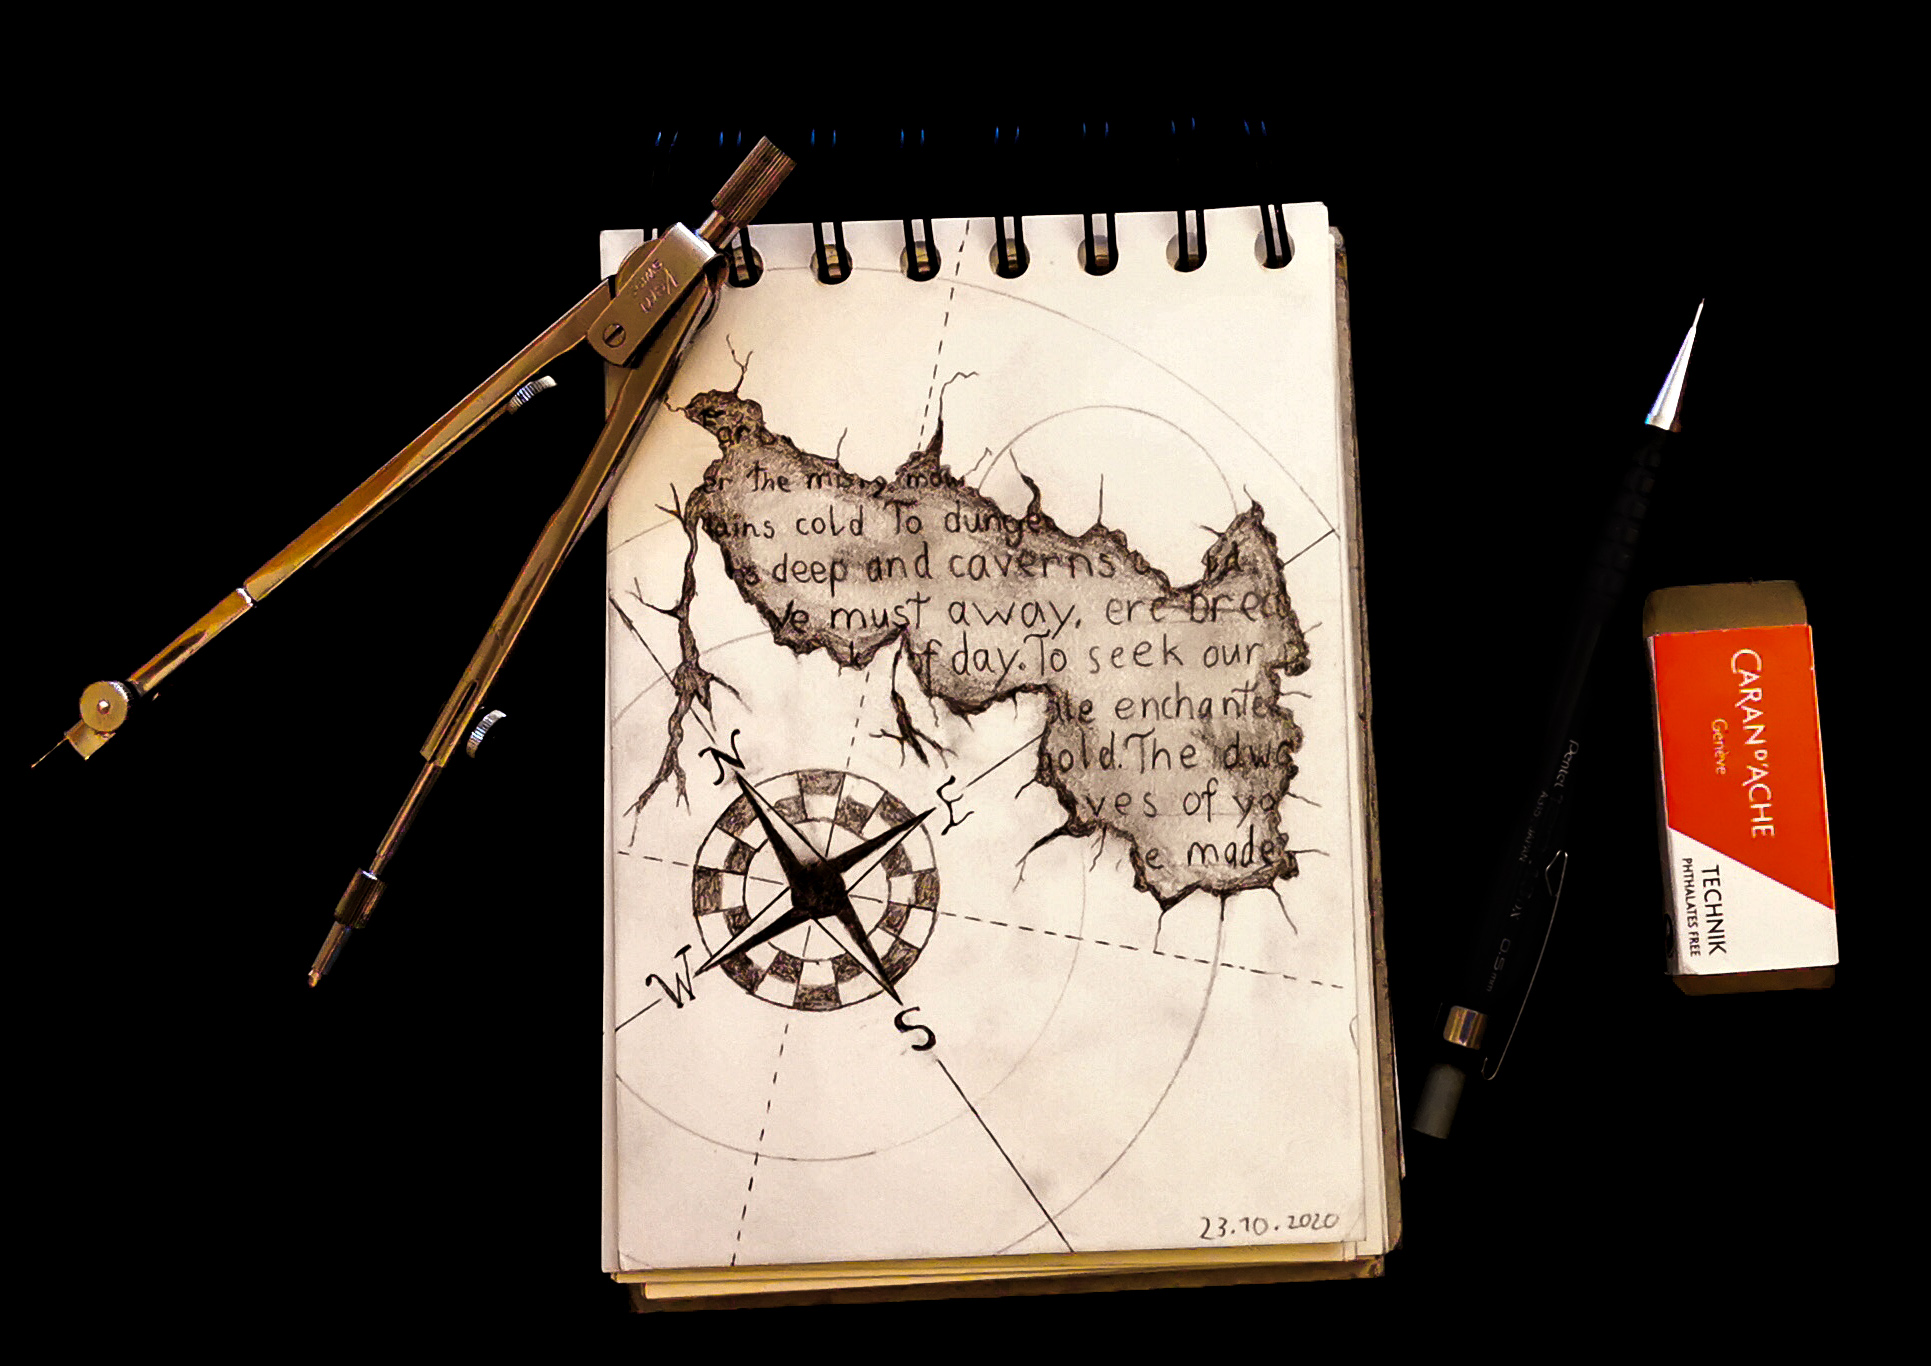 Kern
SWISS
Far o
er the misty mou
tains cold To dunge
s deep and caverns o ld
We must away, ere brea
k of day. To seek our p
ale enchante
gold. The dwa
ves of yo
e made
N
E
W
S
23.10.2020
Pentel
JAPAN
0.5mm
CARAN D'ACHE
Genève
TECHNIK
PHTHALATES FREE